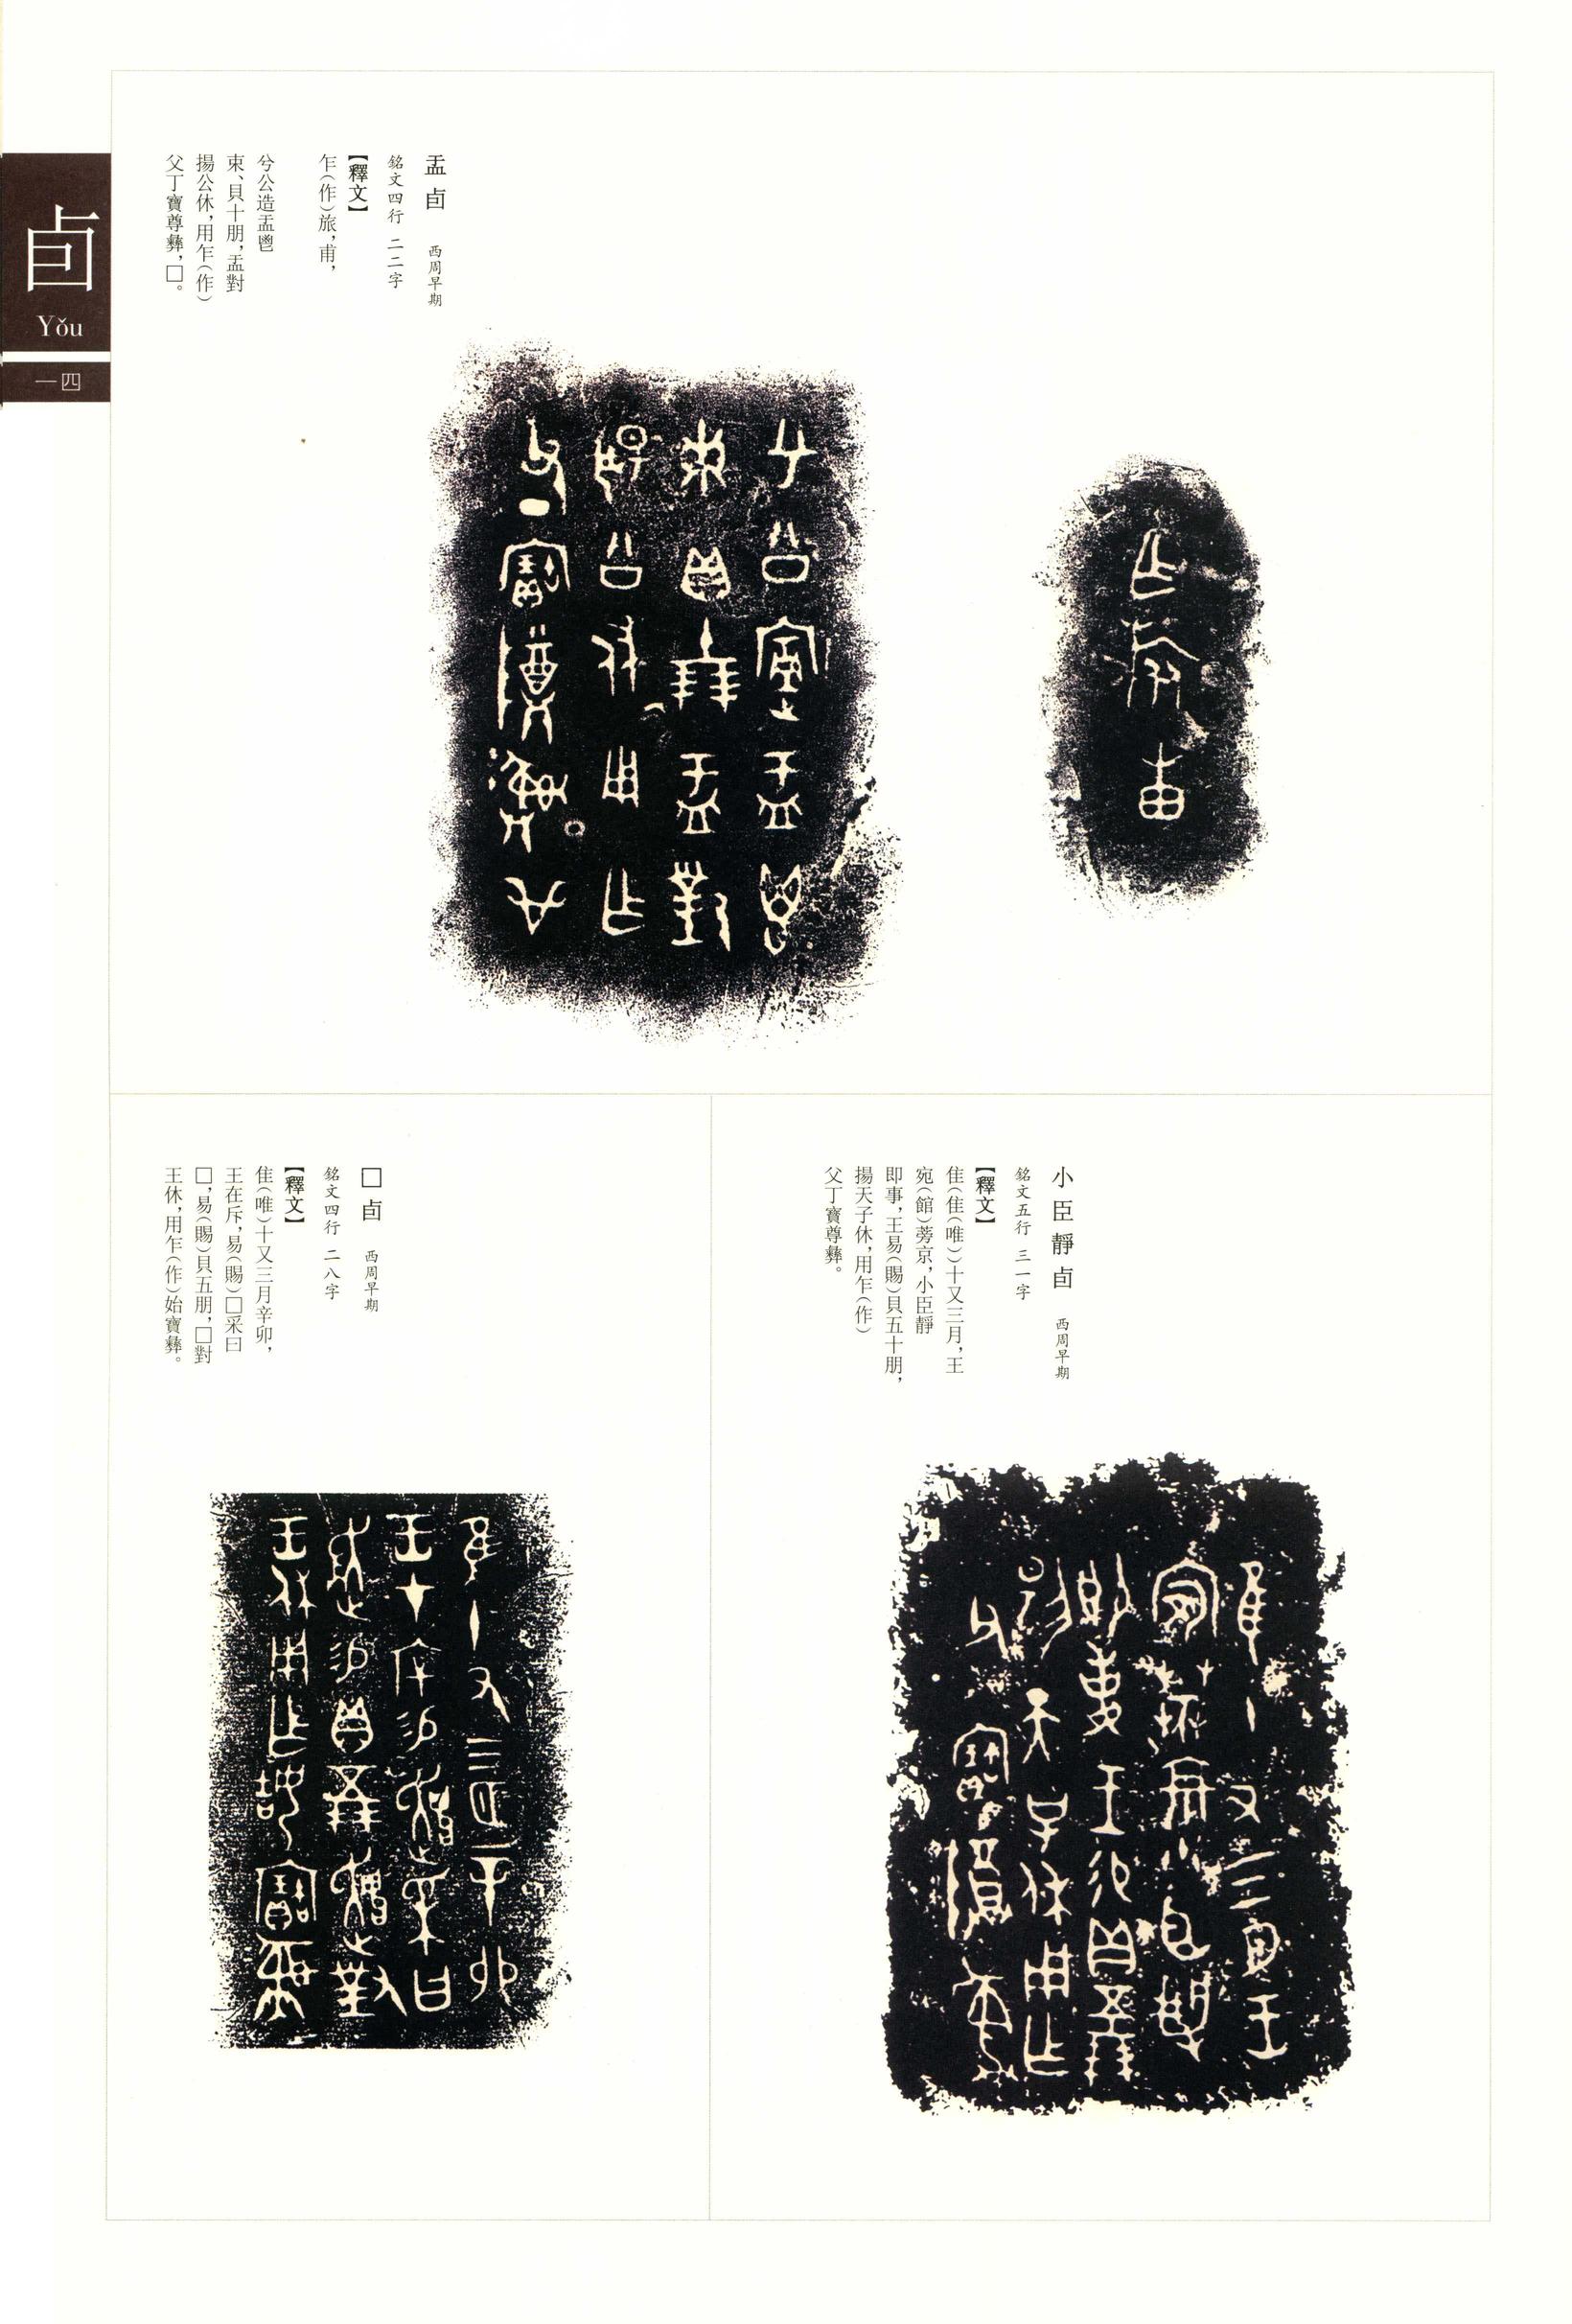 卣
Yǒu
一四
盂卣 西周早期
銘文四行 二二字
【釋文】
乍(作)旅,甫,
兮公造盂鬯
束、貝十朋,盂對
揚公休,用乍(作)
父丁寶尊彝,□。
小臣靜卣 西周早期
銘文五行 三一字
【釋文】
隹(隹(唯))十又三月,王
宛(館)蒡京,小臣靜
即事,王易(賜)貝五十朋,
揚天子休,用乍(作)
父丁寶尊彝。
□卣 西周早期
銘文四行 二八字
【釋文】
隹(唯)十又三月辛卯,
王在斥,易(賜)□采曰
□,易(賜)貝五朋,□對
王休,用乍(作)始寶彝。